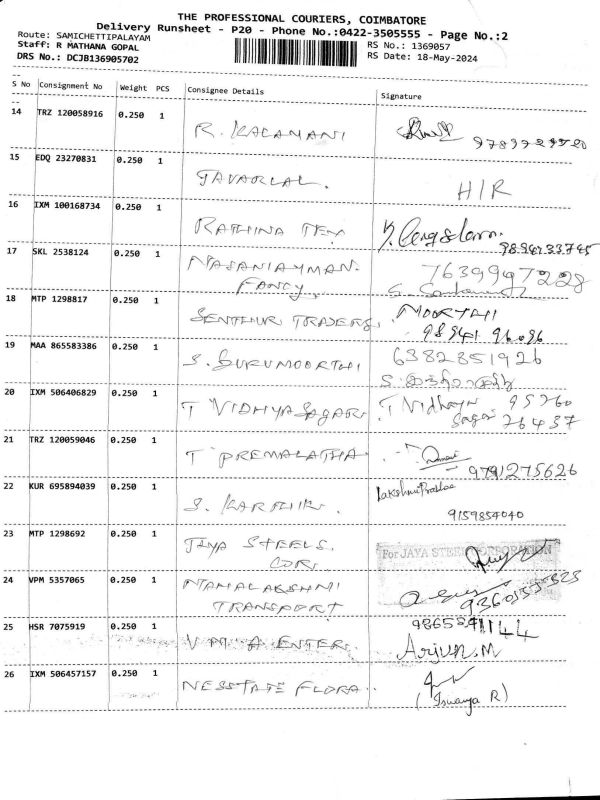 THE PROFESSIONAL COURIERS, COIMBATORE
Delivery Runsheet - P20 - Phone No.:0422-3505555 - Page No.:2
Route: SAMICHETTIPALAYAM
RS No.: 1369057
Staff: R MATHANA GOPAL
RS Date: 18-May-2024
DRS No.: DCJB136905702
S No Consignment No Weight PCS Consignee Details Signature
14 TRZ 120058916 0.250 1 R. KALAMANI
15 EDQ 23270831 0.250 1 JAVARLAL. H/R
16 IXM 100168734 0.250 1 RATHINA TEX 9894133745
17 SKL 2538124 0.250 1 MASANIAYMAN. 7639997228
FANCY,
18 MTP 1298817 0.250 1 SENTHUR TRADERS, MOORTHI
98941 96096
19 MAA 865583386 0.250 1 S. GURUMOORTHI 6382851926
20 IXM 506406829 0.250 1 T VIDHYASAGAR T Vidhaya 95260
Sagar 26437
21 TRZ 120059046 0.250 1 T PREMALATHA 9791275626
22 KUR 695894039 0.250 1 S. KARTHIK. Lakshmi Prabha
9159854040
23 MTP 1298692 0.250 1 JAYA STEELS. For JAYA STEEL CORPORATION
CORP.
24 VPM 5357065 0.250 1 MAHALAKSHMI
TRANSPORT
25 HSR 7075919 0.250 1 V M A ENTER. Arjun.M
26 IXM 506457157 0.250 1 NESSTATE FLORA.
(Iswarya R)